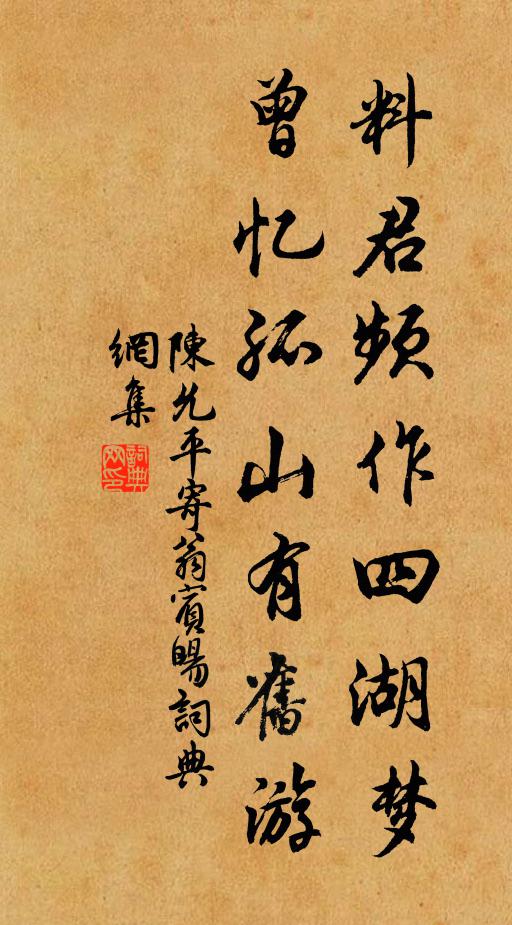 料君频作四湖梦
曾忆孤山有舊游
陳允平寄翁賓暘詞典
網集
詞典
网印